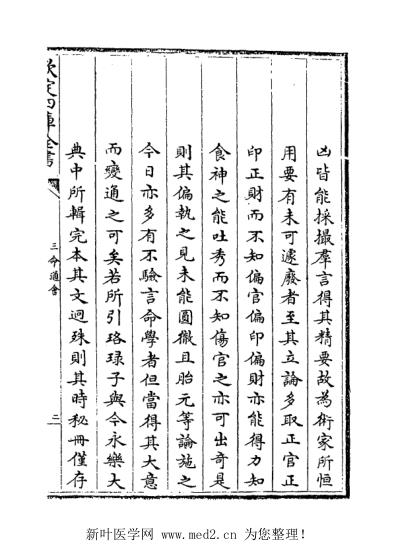 凶皆能採撮羣言得其精要故為術家所恒
用要有未可遽廢者至其立論多取正官正
印正財而不知偏官偏印偏財亦能得力知
食神之能吐秀而不知傷官之亦可出奇是
則其偏執之見未能圓徹且胎元等論施之
今日亦多有不驗言命學者但當得其大意
而變通之可矣若所引珞琭子與今永樂大
典中所輯完本其文迥殊則其時秘冊僅存
欽定四庫全書
三命通會
二
新叶医学网 www.med2.cn 为您整理!